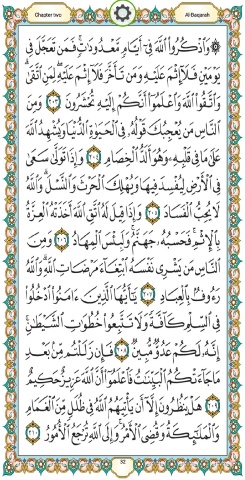 Chapter two
Al-Baqarah
وَاذْكُرُوا اللَّهَ فِي أَيَّامٍ مَعْدُودَاتٍ فَمَنْ تَعَجَّلَ فِي
يَوْمَيْنِ فَلَا إِثْمَ عَلَيْهِ وَمَنْ تَأَخَّرَ فَلَا إِثْمَ عَلَيْهِ لِمَنِ اتَّقَى
وَاتَّقُوا اللَّهَ وَاعْلَمُوا أَنَّكُمْ إِلَيْهِ تُحْشَرُونَ ٢٠٣ وَمِنَ
النَّاسِ مَنْ يُعْجِبُكَ قَوْلُهُ فِي الْحَيَاةِ الدُّنْيَا وَيُشْهِدُ اللَّهَ
عَلَى مَا فِي قَلْبِهِ وَهُوَ أَلَدُّ الْخِصَامِ ٢٠٤ وَإِذَا تَوَلَّى سَعَى
فِي الْأَرْضِ لِيُفْسِدَ فِيهَا وَيُهْلِكَ الْحَرْثَ وَالنَّسْلَ وَاللَّهُ
لَا يُحِبُّ الْفَسَادَ ٢٠٥ وَإِذَا قِيلَ لَهُ اتَّقِ اللَّهَ أَخَذَتْهُ الْعِزَّةُ
بِالْإِثْمِ فَحَسْبُهُ جَهَنَّمُ وَلَبِئْسَ الْمِهَادُ ٢٠٦ وَمِنَ
النَّاسِ مَنْ يَشْرِي نَفْسَهُ ابْتِغَاءَ مَرْضَاتِ اللَّهِ وَاللَّهُ
رَءُوفٌ بِالْعِبَادِ ٢٠٧ يَا أَيُّهَا الَّذِينَ آمَنُوا ادْخُلُوا
فِي السِّلْمِ كَافَّةً وَلَا تَتَّبِعُوا خُطُوَاتِ الشَّيْطَانِ
إِنَّهُ لَكُمْ عَدُوٌّ مُبِينٌ ٢٠٨ فَإِنْ زَلَلْتُمْ مِنْ بَعْدِ
مَا جَاءَتْكُمُ الْبَيِّنَاتُ فَاعْلَمُوا أَنَّ اللَّهَ عَزِيزٌ حَكِيمٌ
٢٠٩ هَلْ يَنْظُرُونَ إِلَّا أَنْ يَأْتِيَهُمُ اللَّهُ فِي ظُلَلٍ مِنَ الْغَمَامِ
وَالْمَلَائِكَةُ وَقُضِيَ الْأَمْرُ وَإِلَى اللَّهِ تُرْجَعُ الْأُمُورُ ٢١٠
32